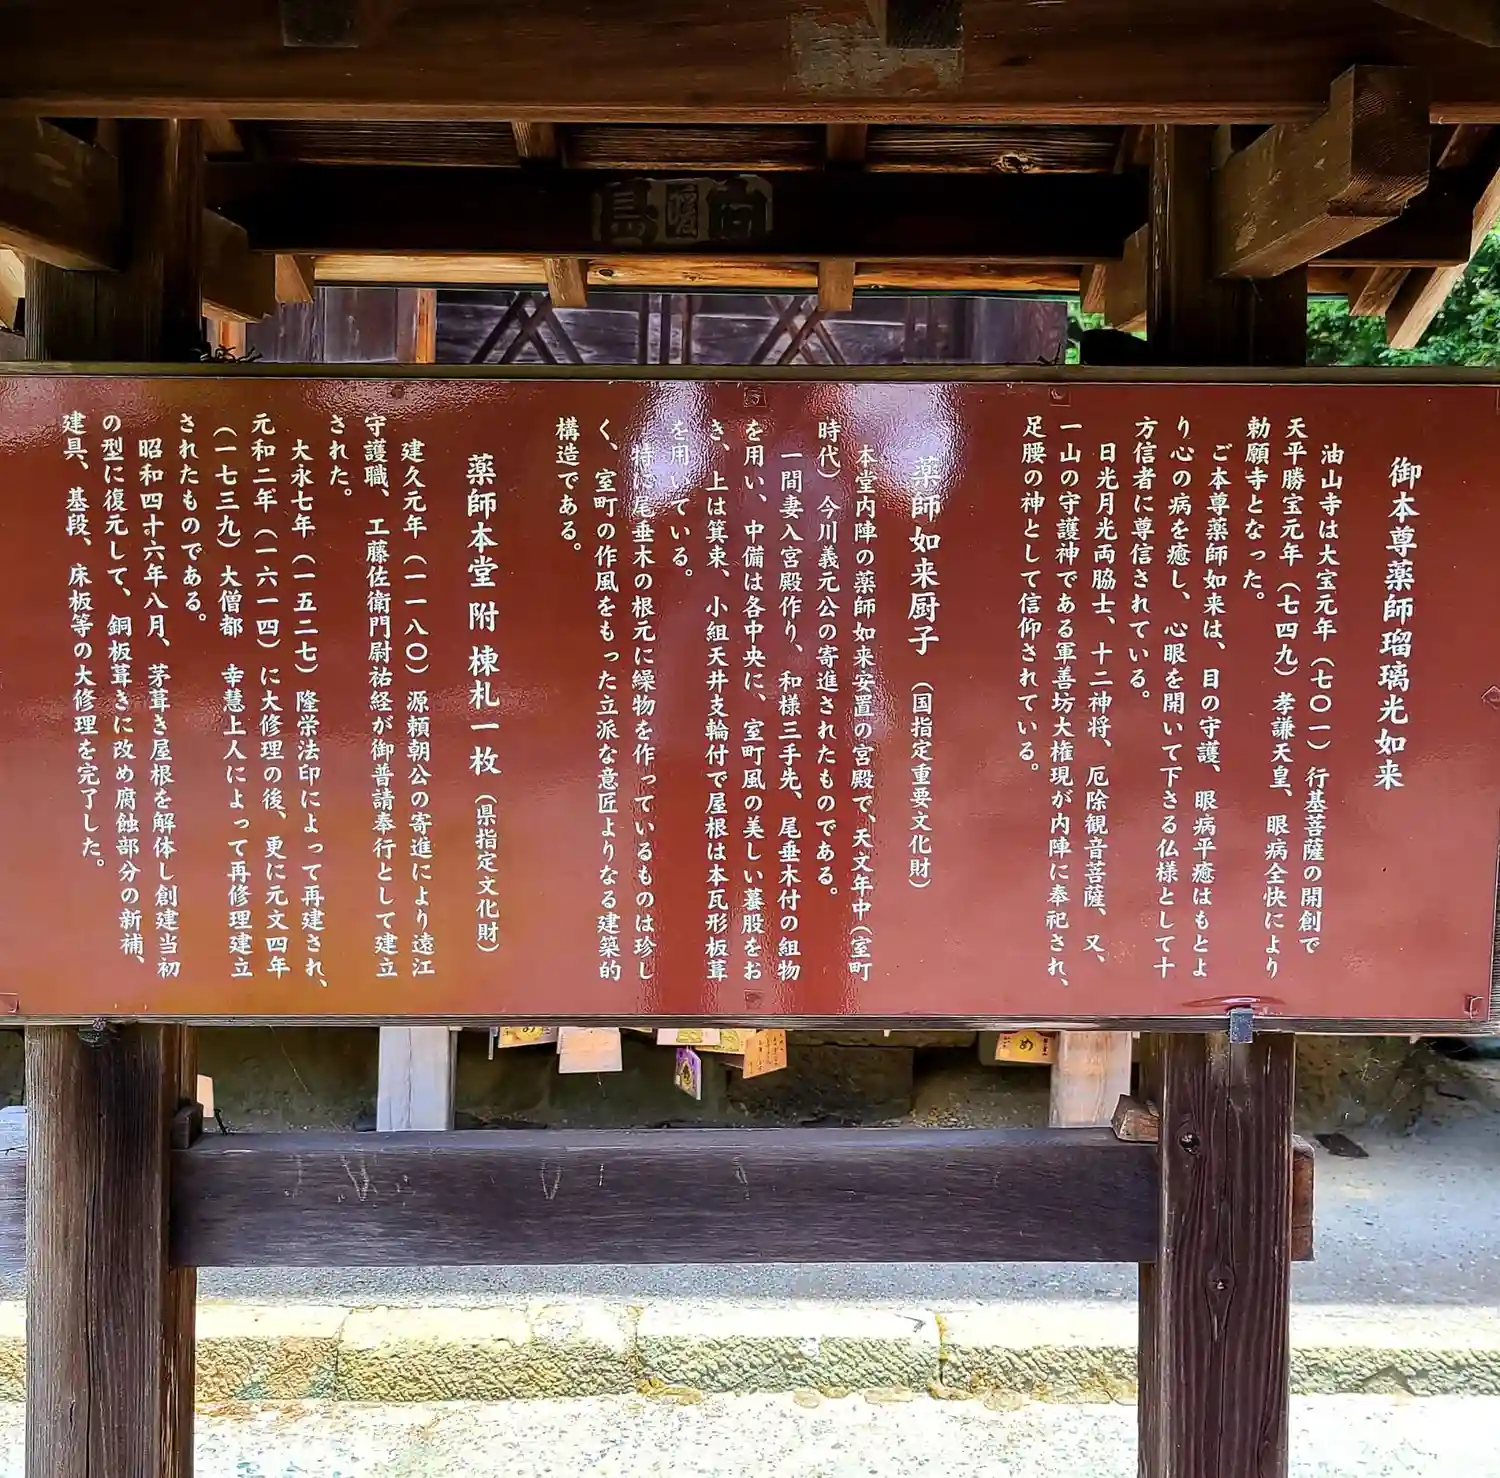 御本尊薬師瑠璃光如来
油山寺は大宝元年（七〇一）行基菩薩の開創で
天平勝宝元年（七四九）孝謙天皇、眼病全快により
勅願寺となった。
ご本尊薬師如来は、目の守護、眼病平癒はもとよ
り心の病を癒し、心眼を開いて下さる仏様として十
方信者に尊信されている。
日光月光両脇士、十二神将、厄除観音菩薩、又、
一山の守護神である軍善坊大権現が内陣に奉祀され、
足腰の神として信仰されている。
薬師如来厨子（国指定重要文化財）
本堂内陣の薬師如来安置の宮殿で、天文年中（室町
時代）今川義元公の寄進されたものである。
一間妻入宮殿作り、和様三手先、尾垂木付の組物
を用い、中備は各中央に、室町風の美しい蟇股をお
き、上は箕束、小組天井支輪付で屋根は本瓦形板葺
を用いている。
特に尾垂木の根元に繰物を作っているものは珍し
く、室町の作風をもった立派な意匠よりなる建築的
構造である。
薬師本堂 附 棟札一枚（県指定文化財）
建久元年（一一八〇）源頼朝公の寄進により遠江
守護職、工藤佐衛門尉祐経が御普請奉行として建立
された。
大永七年（一五二七）隆栄法印によって再建され、
元和二年（一六一四）に大修理の後、更に元文四年
（一七三九）大僧都 幸慧上人によって再修理建立
されたものである。
昭和四十六年八月、茅葺き屋根を解体し創建当初
の型に復元して、銅板葺きに改め腐蝕部分の新補、
建具、基段、床板等の大修理を完了した。
め
め